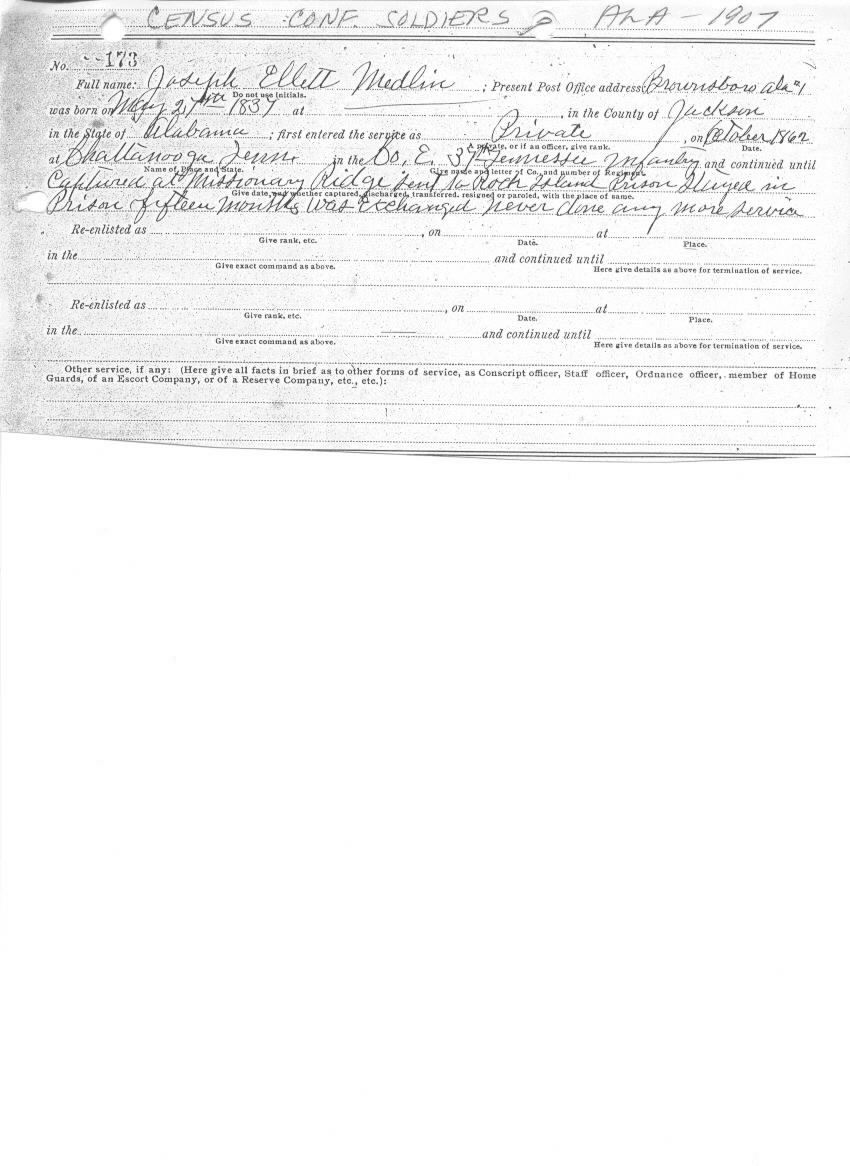 CENSUS CONF. SOLDIERS ALA - 1907
No. 173
Full name: Joseph Ellett Medlin ; Present Post Office address: Brownsboro Ala #1
Do not use initials.
was born on May 27th 1837 at , in the County of Jackson
in the State of Alabama ; first entered the service as Private , on October 1862
A private, or if an officer, give rank. Date.
at Chattanooga Tenn. in the Co. E. 37th Tennessee Infantry and continued until
Name of Place and State. Give name and letter of Co., and number of Regiment.
Captured at Missionary Ridge sent to Rock Island Prison Stayed in
Give date, and whether captured, discharged, transferred, resigned or paroled, with the place of same.
Prison fifteen months Was Exchanged never done any more service
Re-enlisted as , on at
Give rank, etc. Date. Place.
in the and continued until
Give exact command as above. Here give details as above for termination of service.
Re-enlisted as , on at
Give rank, etc. Date. Place.
in the and continued until
Give exact command as above. Here give details as above for termination of service.
Other service, if any: (Here give all facts in brief as to other forms of service, as Conscript officer, Staff officer, Ordnance officer, member of Home
Guards, of an Escort Company, or of a Reserve Company, etc., etc.):